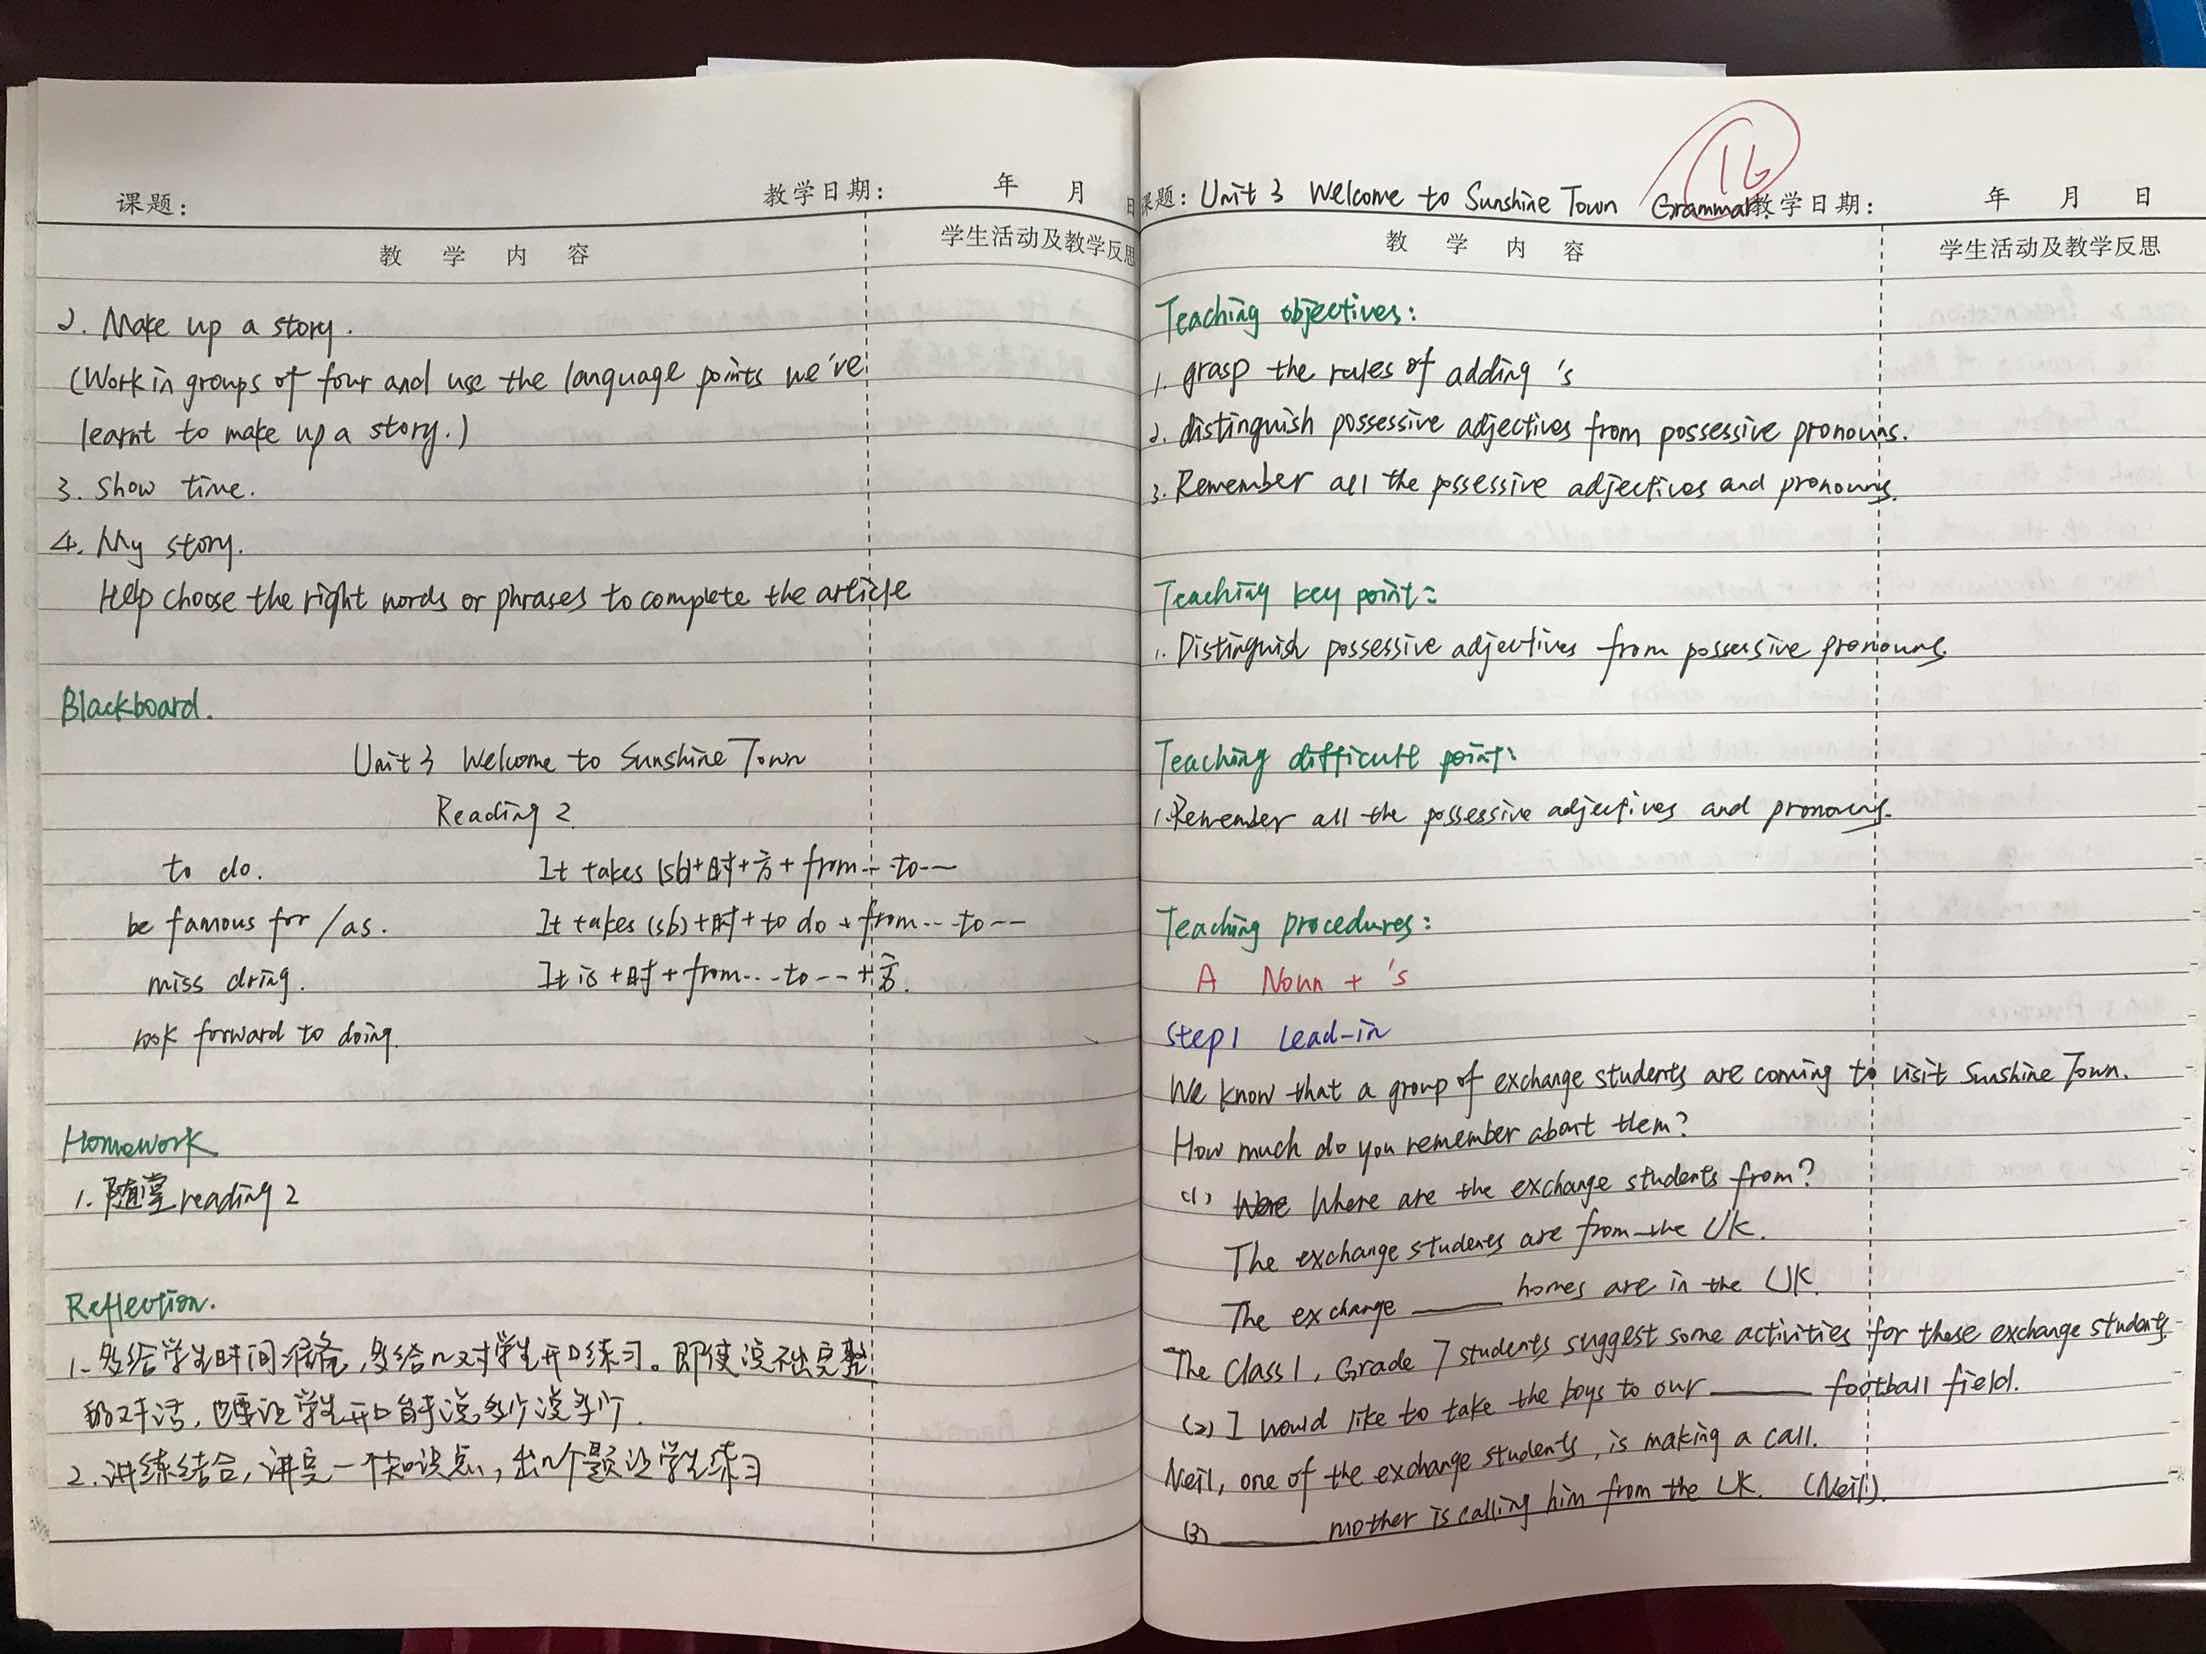 课题： 教学日期： 年 月 日
教 学 内 容 学生活动及教学反思
2. Make up a story.
(Work in groups of four and use the language points we've
learnt to make up a story.)
3. Show time.
4. My story.
Help choose the right words or phrases to complete the article
Blackboard.
Unit 3 Welcome to Sunshine Town
Reading 2
to do. It takes (sb)+时+方+from...to...
be famous for/as. It takes (sb)+时+to do+from...to...
miss doing. It is+时+from...to...+方.
look forward to doing.
Homework
1. 随堂 reading 2
Reflection.
1. 多给学生时间准备,多给n对学生开口练习。即使说不出完整
的对话,也要让学生开口能说多少说多少.
2. 讲练结合,讲完一个知识点,出n个题让学生练习
16
课题：Unit 3 Welcome to Sunshine Town Grammar. 教学日期： 年 月 日
教 学 内 容 学生活动及教学反思
Teaching objectives:
1. grasp the rules of adding 's
2. distinguish possessive adjectives from possessive pronouns.
3. Remember all the possessive adjectives and pronouns.
Teaching key point:
1. Distinguish possessive adjectives from possessive pronouns.
Teaching difficult point:
1. Remember all the possessive adjectives and pronouns.
Teaching procedures:
A Noun + 's
Step1 Lead-in
We know that a group of exchange students are coming to visit Sunshine Town.
How much do you remember about them?
(1) Where are the exchange students from?
The exchange students are from the UK.
The exchange ____ homes are in the UK.
The Class 1, Grade 7 students suggest some activities for these exchange students.
(2) I would like to take the boys to our ____ football field.
Neil, one of the exchange students, is making a call.
(3) ____ mother is calling him from the UK. (Neil).